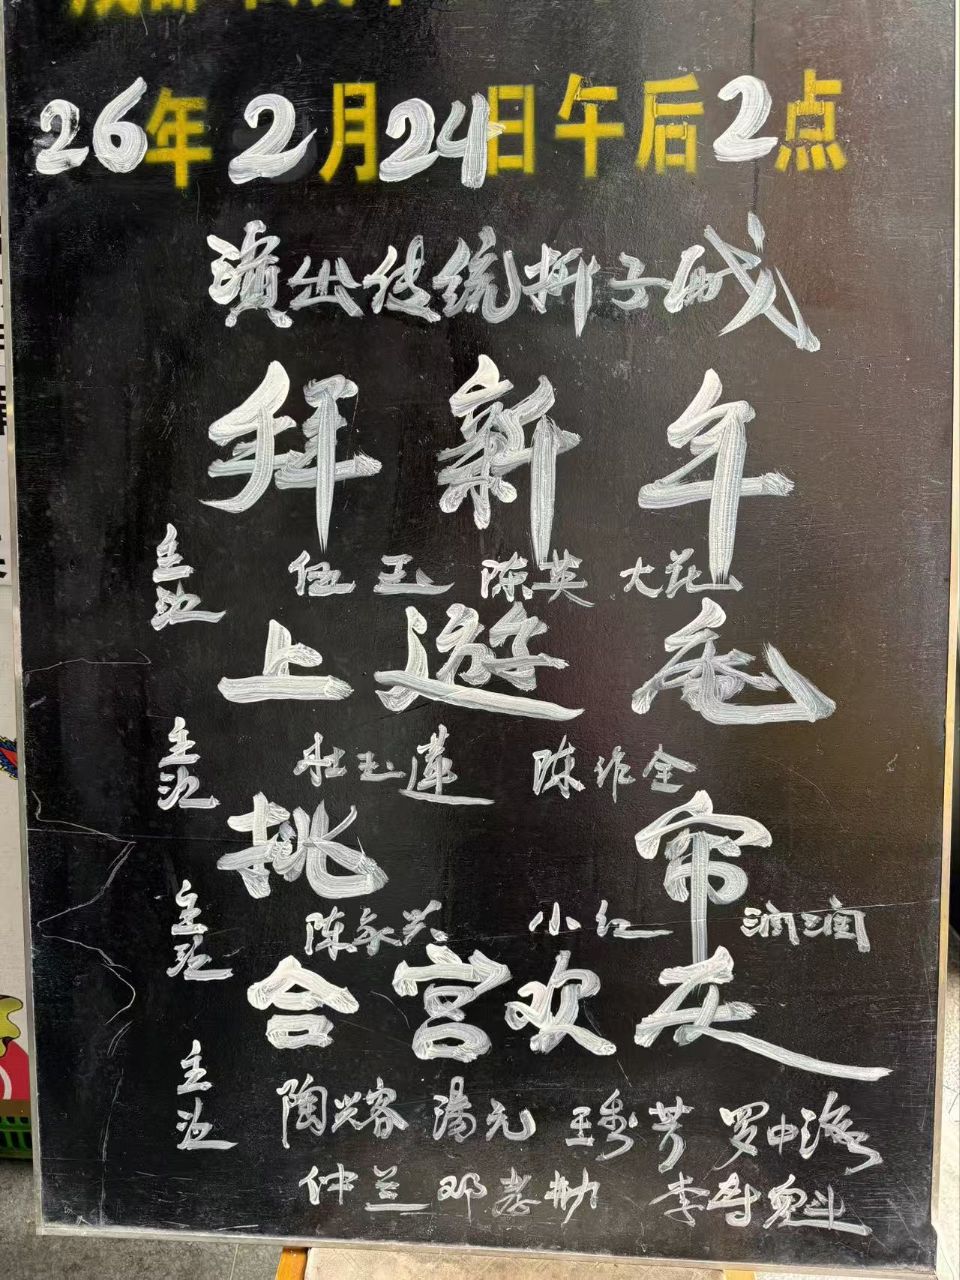 26年2月24日午后2点
演出传统折子戏
拜新年
主演 伍玉 陈英 大花
上游庵
主演 杜玉莲 陈作全
挑帘
主演 陈永兴 小红 润润
合宫欢庆
主演 陶兴容 汤元 王秀芳 罗中洛
仲兰 邓孝勋 李奇魁